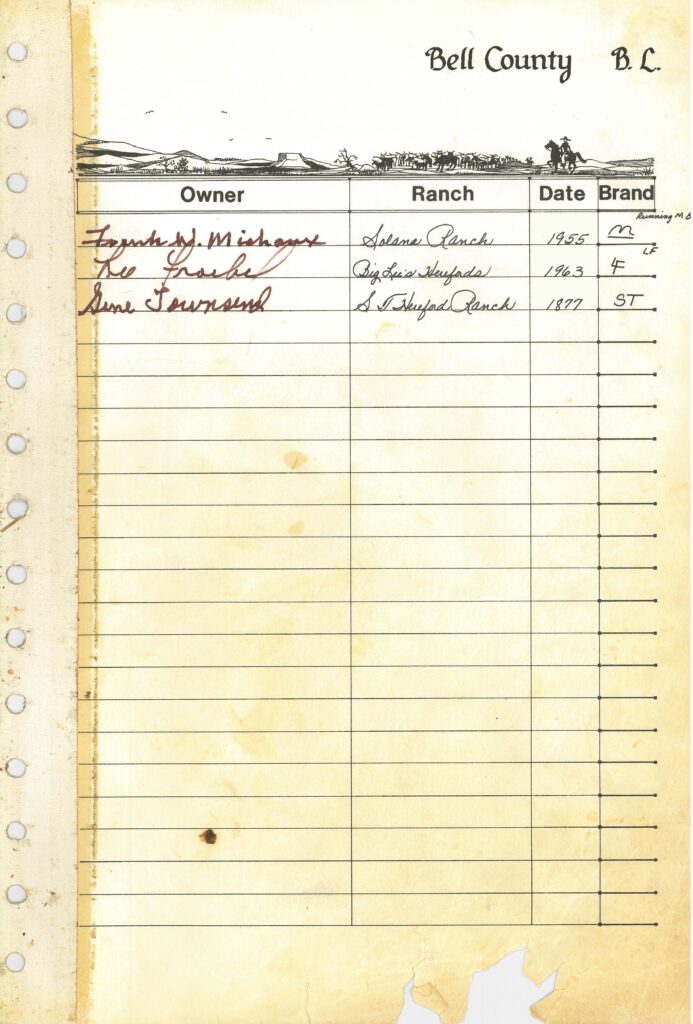 Bell County B. L.
Owner Ranch Date Brand
Running M B
Frank W. Michaux Solana Ranch 1955 M
LF
Lee Froebel Big Lee's Herefords 1963 F
Gene Townsend S T Hereford Ranch 1877 ST